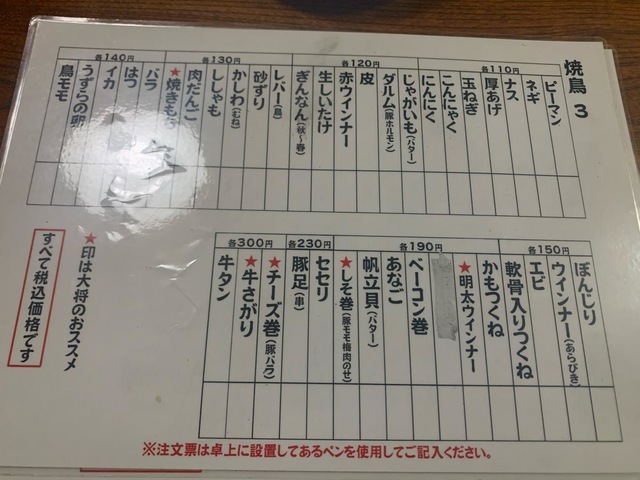 焼鳥 3
各110円
ピーマン
ネギ
ナス
厚あげ
玉ねぎ
こんにゃく
にんにく
各120円
じゃがいも(バター)
ダルム(豚ホルモン)
皮
赤ウインナー
生しいたけ
ぎんなん(秋～春)
各130円
レバー(鳥)
砂ずり
かしわ(むね)
ししゃも
肉だんご
★焼きも
各140円
バラ
はつ
イカ
うずらの卵
鳥モモ
各150円
ぼんじり
ウインナー(あらびき)
エビ
軟骨入りつくね
かもつくね
各190円
★明太ウインナー
ベーコン巻
あなご
帆立貝(バター)
★しそ巻(豚モモ梅肉のせ)
各230円
セセリ
豚足(串)
各300円
★チーズ巻(豚バラ)
★牛さがり
牛タン
★印は大将のおススメ
すべて税込価格です
※注文票は卓上に設置してあるペンを使用してご記入ください。